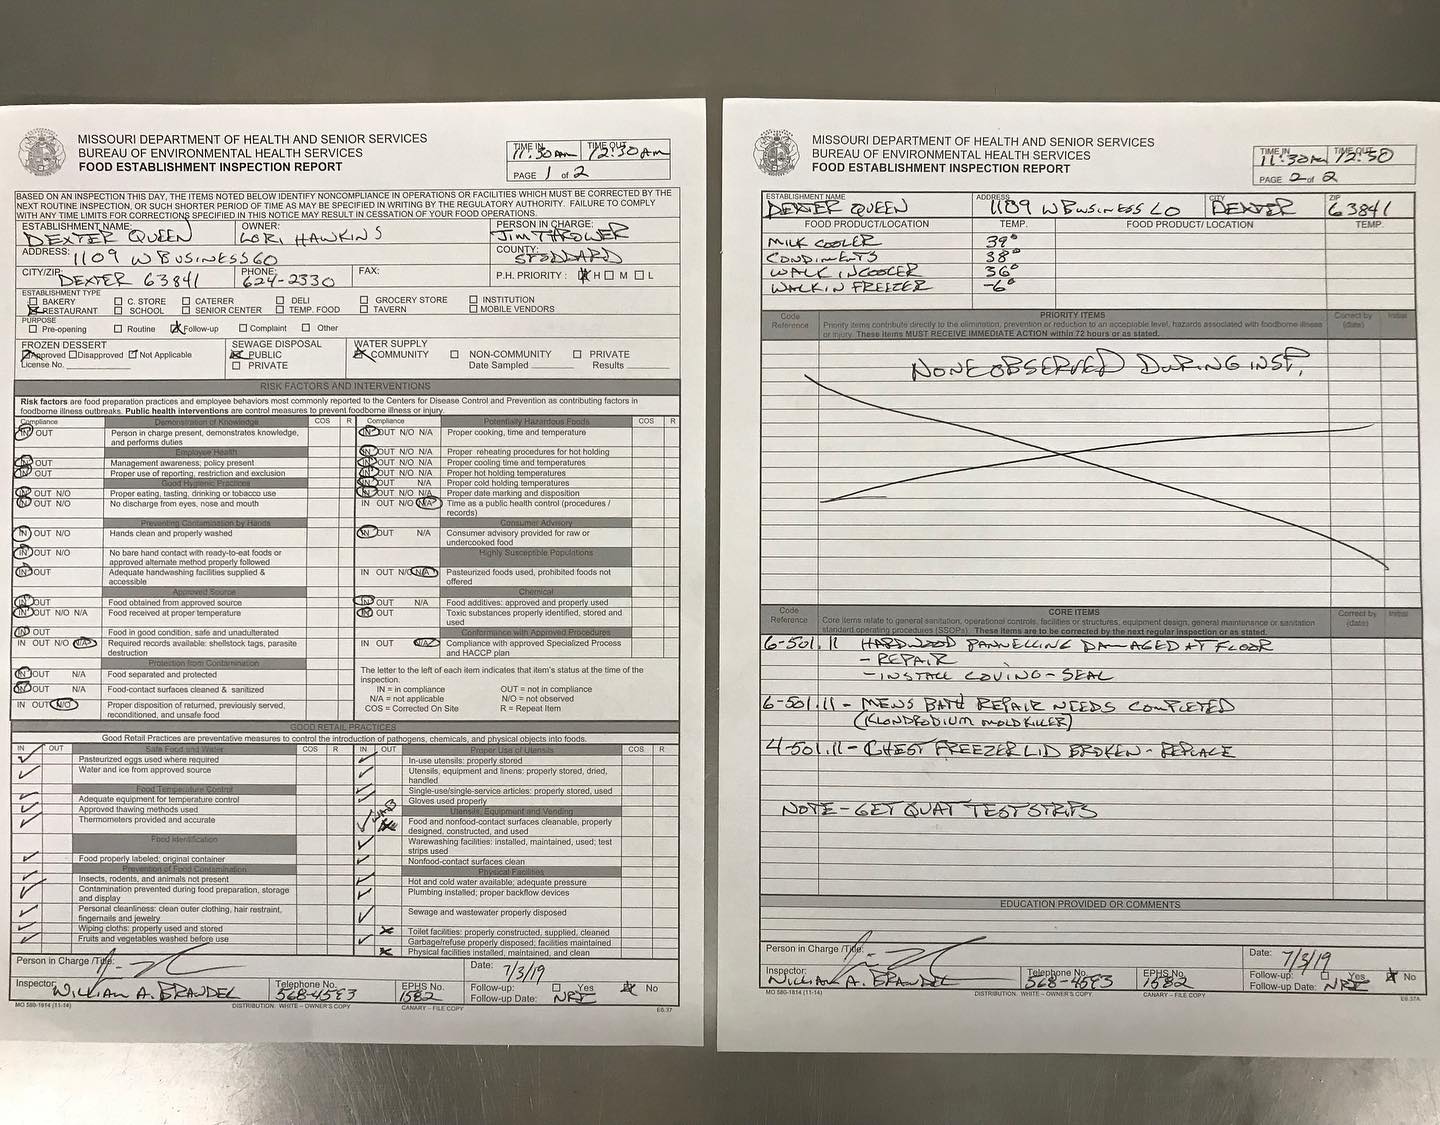 MISSOURI DEPARTMENT OF HEALTH AND SENIOR SERVICES
BUREAU OF ENVIRONMENTAL HEALTH SERVICES
FOOD ESTABLISHMENT INSPECTION REPORT
TIME IN 11:30am TIME OUT 12:30am
PAGE 1 of 2
BASED ON AN INSPECTION THIS DAY, THE ITEMS NOTED BELOW IDENTIFY NONCOMPLIANCE IN OPERATIONS OR FACILITIES WHICH MUST BE CORRECTED BY THE
NEXT ROUTINE INSPECTION, OR SUCH SHORTER PERIOD OF TIME AS MAY BE SPECIFIED IN WRITING BY THE REGULATORY AUTHORITY. FAILURE TO COMPLY
WITH ANY TIME LIMITS FOR CORRECTIONS SPECIFIED IN THIS NOTICE MAY RESULT IN CESSATION OF YOUR FOOD OPERATIONS.
ESTABLISHMENT NAME: DEXTER QUEEN OWNER: LORI HAWKINS PERSON IN CHARGE: JIM THROWER
ADDRESS: 1109 W BUSINESS 60 COUNTY: STODDARD
CITY/ZIP: DEXTER 63841 PHONE: 624-2330 FAX: P.H. PRIORITY : H M L
ESTABLISHMENT TYPE
BAKERY C. STORE CATERER DELI GROCERY STORE INSTITUTION
RESTAURANT SCHOOL SENIOR CENTER TEMP. FOOD TAVERN MOBILE VENDORS
PURPOSE
Pre-opening Routine Follow-up Complaint Other
FROZEN DESSERT SEWAGE DISPOSAL WATER SUPPLY
Approved Disapproved Not Applicable PUBLIC COMMUNITY NON-COMMUNITY PRIVATE
License No. PRIVATE Date Sampled Results
RISK FACTORS AND INTERVENTIONS
Risk factors are food preparation practices and employee behaviors most commonly reported to the Centers for Disease Control and Prevention as contributing factors in
foodborne illness outbreaks. Public health interventions are control measures to prevent foodborne illness or injury.
Compliance Demonstration of Knowledge COS R Compliance Potentially Hazardous Foods COS R
IN OUT Person in charge present, demonstrates knowledge, and performs duties IN OUT N/O N/A Proper cooking, time and temperature
Employee Health IN OUT N/O N/A Proper reheating procedures for hot holding
IN OUT Management awareness; policy present IN OUT N/O N/A Proper cooling time and temperatures
IN OUT Proper use of reporting, restriction and exclusion IN OUT N/O N/A Proper hot holding temperatures
Good Hygienic Practices IN OUT N/A Proper cold holding temperatures
IN OUT N/O Proper eating, tasting, drinking or tobacco use IN OUT N/O N/A Proper date marking and disposition
IN OUT N/O No discharge from eyes, nose and mouth IN OUT N/O N/A Time as a public health control (procedures / records)
Preventing Contamination by Hands Consumer Advisory
IN OUT N/O Hands clean and properly washed IN OUT N/A Consumer advisory provided for raw or undercooked food
IN OUT N/O No bare hand contact with ready-to-eat foods or approved alternate method properly followed Highly Susceptible Populations
IN OUT Adequate handwashing facilities supplied & accessible IN OUT N/O N/A Pasteurized foods used, prohibited foods not offered
Approved Source Chemical
IN OUT Food obtained from approved source IN OUT N/A Food additives: approved and properly used
IN OUT N/O N/A Food received at proper temperature IN OUT Toxic substances properly identified, stored and used
IN OUT Food in good condition, safe and unadulterated Conformance with Approved Procedures
IN OUT N/O N/A Required records available: shellstock tags, parasite destruction IN OUT N/A Compliance with approved Specialized Process and HACCP plan
Protection from Contamination
IN OUT N/A Food separated and protected The letter to the left of each item indicates that item's status at the time of the inspection.
IN OUT N/A Food-contact surfaces cleaned & sanitized IN = in compliance OUT = not in compliance
N/A = not applicable N/O = not observed
IN OUT N/O Proper disposition of returned, previously served, reconditioned, and unsafe food COS = Corrected On Site R = Repeat Item
GOOD RETAIL PRACTICES
Good Retail Practices are preventative measures to control the introduction of pathogens, chemicals, and physical objects into foods.
IN OUT Safe Food and Water COS R IN OUT Proper Use of Utensils COS R
Pasteurized eggs used where required In-use utensils: properly stored
Water and ice from approved source Utensils, equipment and linens: properly stored, dried, handled
Food Temperature Control Single-use/single-service articles: properly stored, used
Adequate equipment for temperature control Gloves used properly
Approved thawing methods used Utensils, Equipment and Vending
Thermometers provided and accurate Food and nonfood-contact surfaces cleanable, properly designed, constructed, and used
Food Identification Warewashing facilities: installed, maintained, used; test strips used
Food properly labeled; original container Nonfood-contact surfaces clean
Prevention of Food Contamination Physical Facilities
Insects, rodents, and animals not present Hot and cold water available; adequate pressure
Contamination prevented during food preparation, storage and display Plumbing installed; proper backflow devices
Personal cleanliness: clean outer clothing, hair restraint, fingernails and jewelry Sewage and wastewater properly disposed
Wiping cloths: properly used and stored Toilet facilities: properly constructed, supplied, cleaned
Fruits and vegetables washed before use Garbage/refuse properly disposed; facilities maintained
Physical facilities installed, maintained, and clean
Person in Charge /Title: Date: 7/3/19
Inspector: WILLIAM A. BRANDEL Telephone No. 568-4593 EPHS No. 1582 Follow-up: Yes No
Follow-up Date: NRI
MO 580-1814 (11-14) DISTRIBUTION: WHITE – OWNER'S COPY CANARY – FILE COPY E6.37
MISSOURI DEPARTMENT OF HEALTH AND SENIOR SERVICES
BUREAU OF ENVIRONMENTAL HEALTH SERVICES
FOOD ESTABLISHMENT INSPECTION REPORT
TIME IN 11:30am TIME OUT 12:30
PAGE 2 of 2
ESTABLISHMENT NAME DEXTER QUEEN ADDRESS 1109 W BUSINESS 60 CITY DEXTER ZIP 63841
FOOD PRODUCT/LOCATION TEMP. FOOD PRODUCT/ LOCATION TEMP.
MILK COOLER 39°
CONDIMENTS 38°
WALK IN COOLER 36°
WALK IN FREEZER -6°
Code Reference PRIORITY ITEMS Correct by (date) Initial
Priority items contribute directly to the elimination, prevention or reduction to an acceptable level, hazards associated with foodborne illness
or injury. These items MUST RECEIVE IMMEDIATE ACTION within 72 hours or as stated.
NONE OBSERVED DURING INSP.
Code Reference CORE ITEMS Correct by (date) Initial
Core items relate to general sanitation, operational controls, facilities or structures, equipment design, general maintenance or sanitation
standard operating procedures (SSOPs). These items are to be corrected by the next regular inspection or as stated.
6-501.11 HARDWOOD PANNELLING DAMAGED AT FLOOR
- REPAIR
- INSTALL COVING - SEAL
6-501.11 - MENS BATH REPAIR NEEDS COMPLETED
(KLONDRODIUM MOLD KILLER)
4-501.11 - CHEST FREEZER LID BROKEN - REPLACE
NOTE - GET QUAT TEST STRIPS
EDUCATION PROVIDED OR COMMENTS
Person in Charge /Title: Date: 7/3/19
Inspector: WILLIAM A. BRANDEL Telephone No. 568-4593 EPHS No. 1582 Follow-up: Yes No
Follow-up Date: NRI
MO 580-1814 (11-14) DISTRIBUTION: WHITE – OWNER'S COPY CANARY – FILE COPY E6.37A